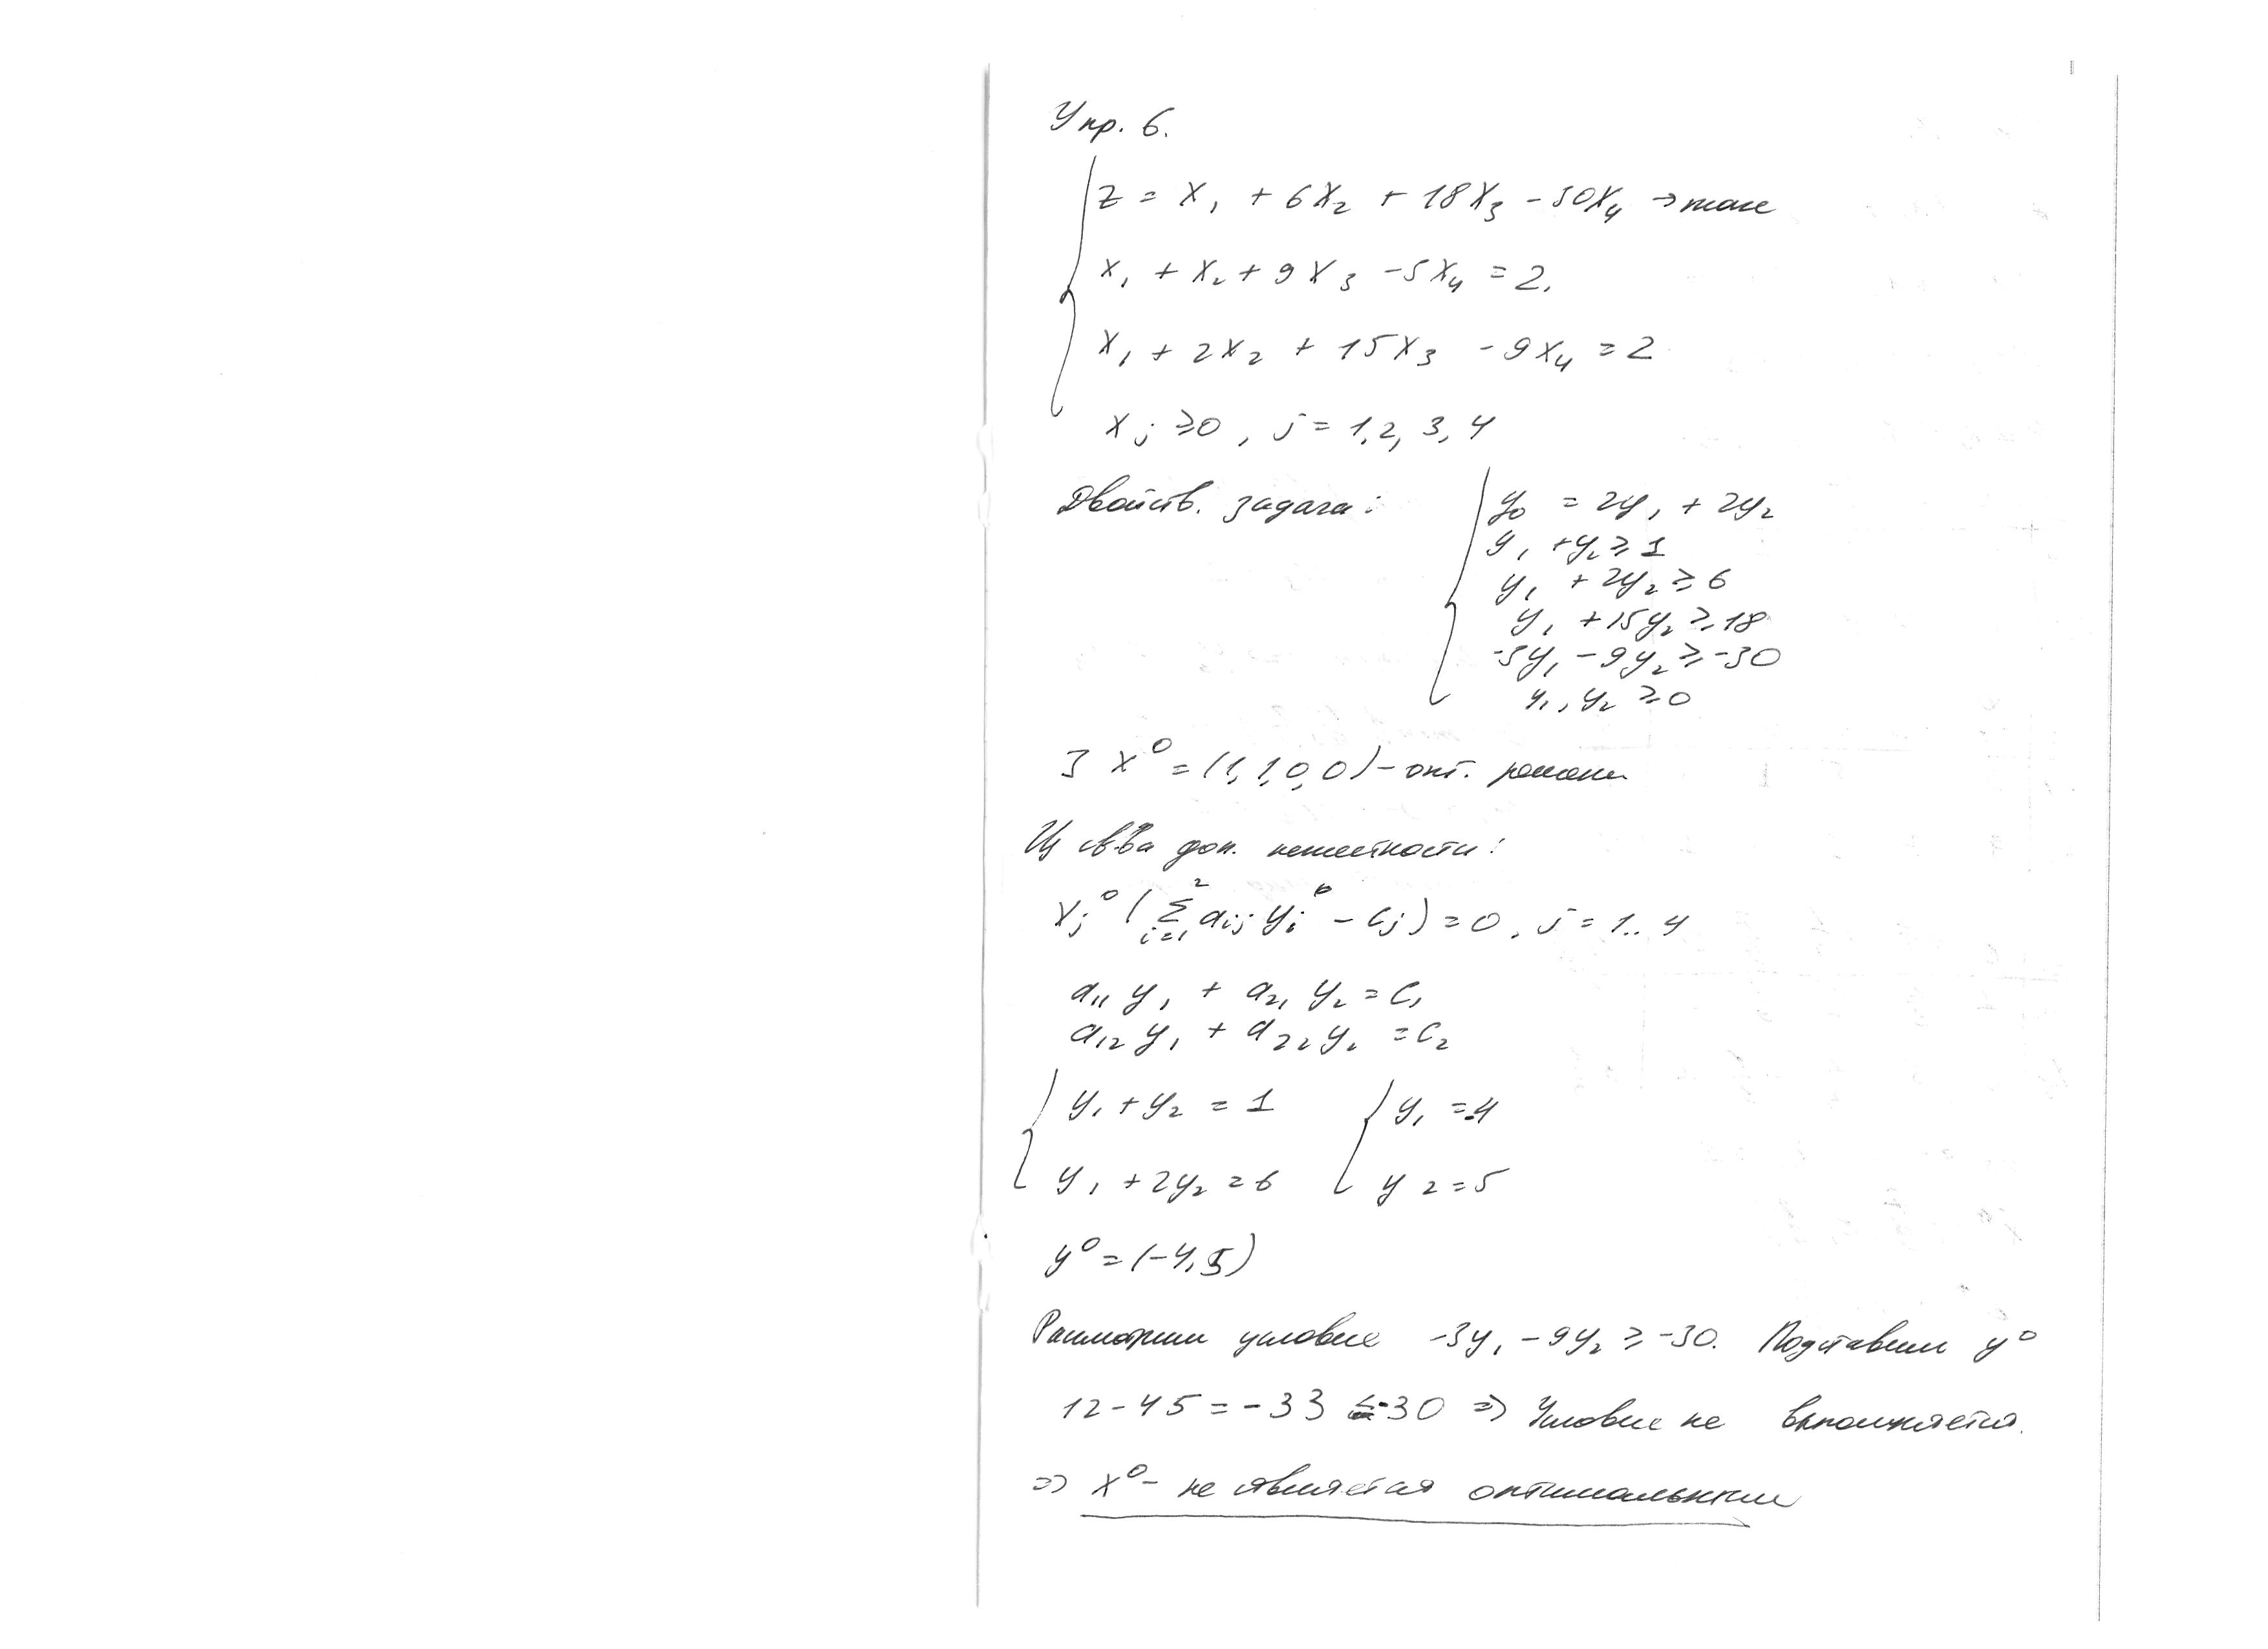 Упр. 6.
z = x₁ + 6x₂ + 18x₃ - 30x₄ → max
x₁ + x₂ + 9x₃ - 5x₄ = 2.
x₁ + 2x₂ + 15x₃ - 9x₄ = 2
xⱼ ≥ 0, j = 1,2, 3, 4
Двойств. задача:
y₀ = 2y₁ + 2y₂
y₁ + y₂ ≥ 1
y₁ + 2y₂ ≥ 6
y₁ + 15y₂ ≥ 18
-3y₁ - 9y₂ ≥ -30
y₁, y₂ ≥ 0
∃ x⁰ = (1, 1, 0, 0) - опт. решение
Из св-ва доп. нежесткости:
xⱼ⁰ (∑ᵢ₌₁² aᵢⱼ yᵢ⁰ - cⱼ) = 0, j = 1..4
a₁₁ y₁ + a₂₁ y₂ = c₁
a₁₂ y₁ + a₂₂ y₂ = c₂
{ y₁ + y₂ = 1 { y₁ = -4
y₁ + 2y₂ = 6 y₂ = 5
y⁰ = (-4, 5)
Рассмотрим условие -3y₁ - 9y₂ ≥ -30. Подставим y⁰
12 - 45 = -33 ≤ -30 ⇒ Условие не выполняется.
⇒ x⁰ - не является оптимальным